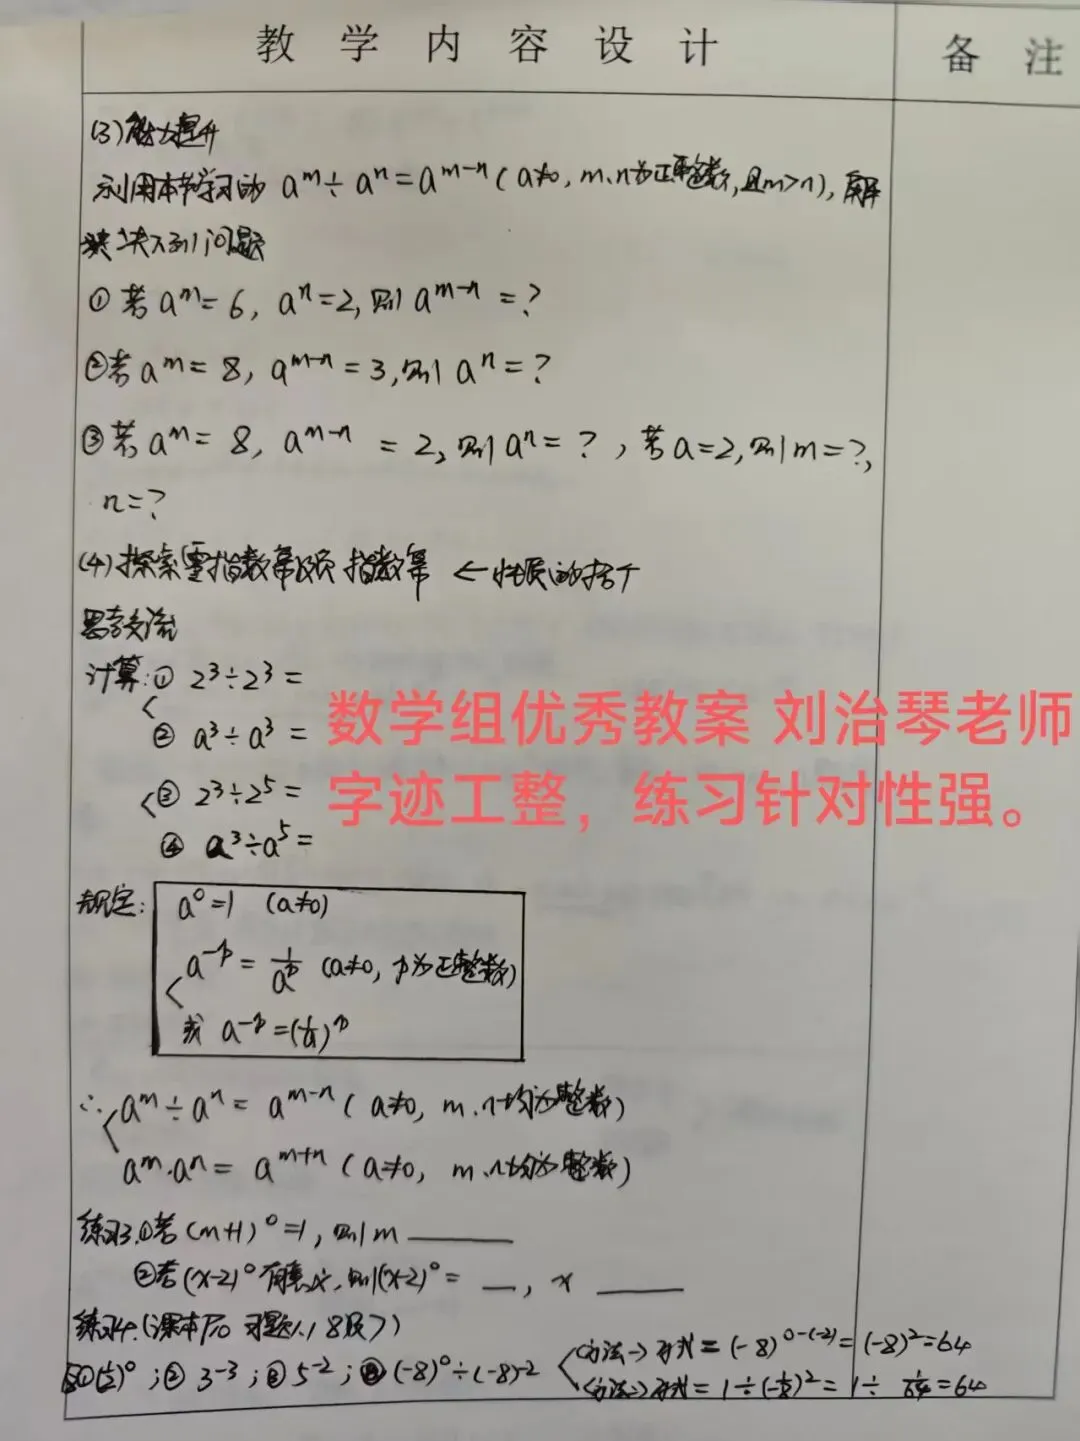 教学内容设计
备注
(3)能力提升
利用本节学习的 aᵐ÷aⁿ=aᵐ⁻ⁿ(a≠0, m、n为正整数,且m>n), 解
决下列问题
① 若aᵐ=6, aⁿ=2,则aᵐ⁻ⁿ=?
②若aᵐ=8, aᵐ⁻ⁿ=3,则aⁿ=?
③若aᵐ=8, aᵐ⁻ⁿ=2,则aⁿ=?, 若a=2,则m=?,
n=?
(4)探索零指数幂及负指数幂 ←性质的
思考交流
计算:① 2³÷2³=
② a³÷a³=
数学组优秀教案 刘治琴老师
③ 2³÷2⁵=
字迹工整,练习针对性强。
④ a³÷a⁵=
规定: a⁰=1 (a≠0)
a⁻ᵖ=1/aᵖ (a≠0, p为正整数)
或 a⁻ᵖ=(1/a)ᵖ
∴ aᵐ÷aⁿ=aᵐ⁻ⁿ(a≠0, m、n均为整数)
aᵐ·aⁿ=aᵐ⁺ⁿ(a≠0, m、n均为整数)
练习3.①若(m+1)⁰=1,则m ______
②若(x-2)⁰有意义,则(x-2)⁰= __, x ____
练习4.(课本P10 习题1.1 8题)
①(½)⁰;② 3⁻³;③5⁻²;④(-8)⁰÷(-8)⁻²
方法一)原式=(-8)⁰⁻⁽⁻²⁾=(-8)²=64
方法二)原式=1÷(-1/8)²=1÷1/64=64